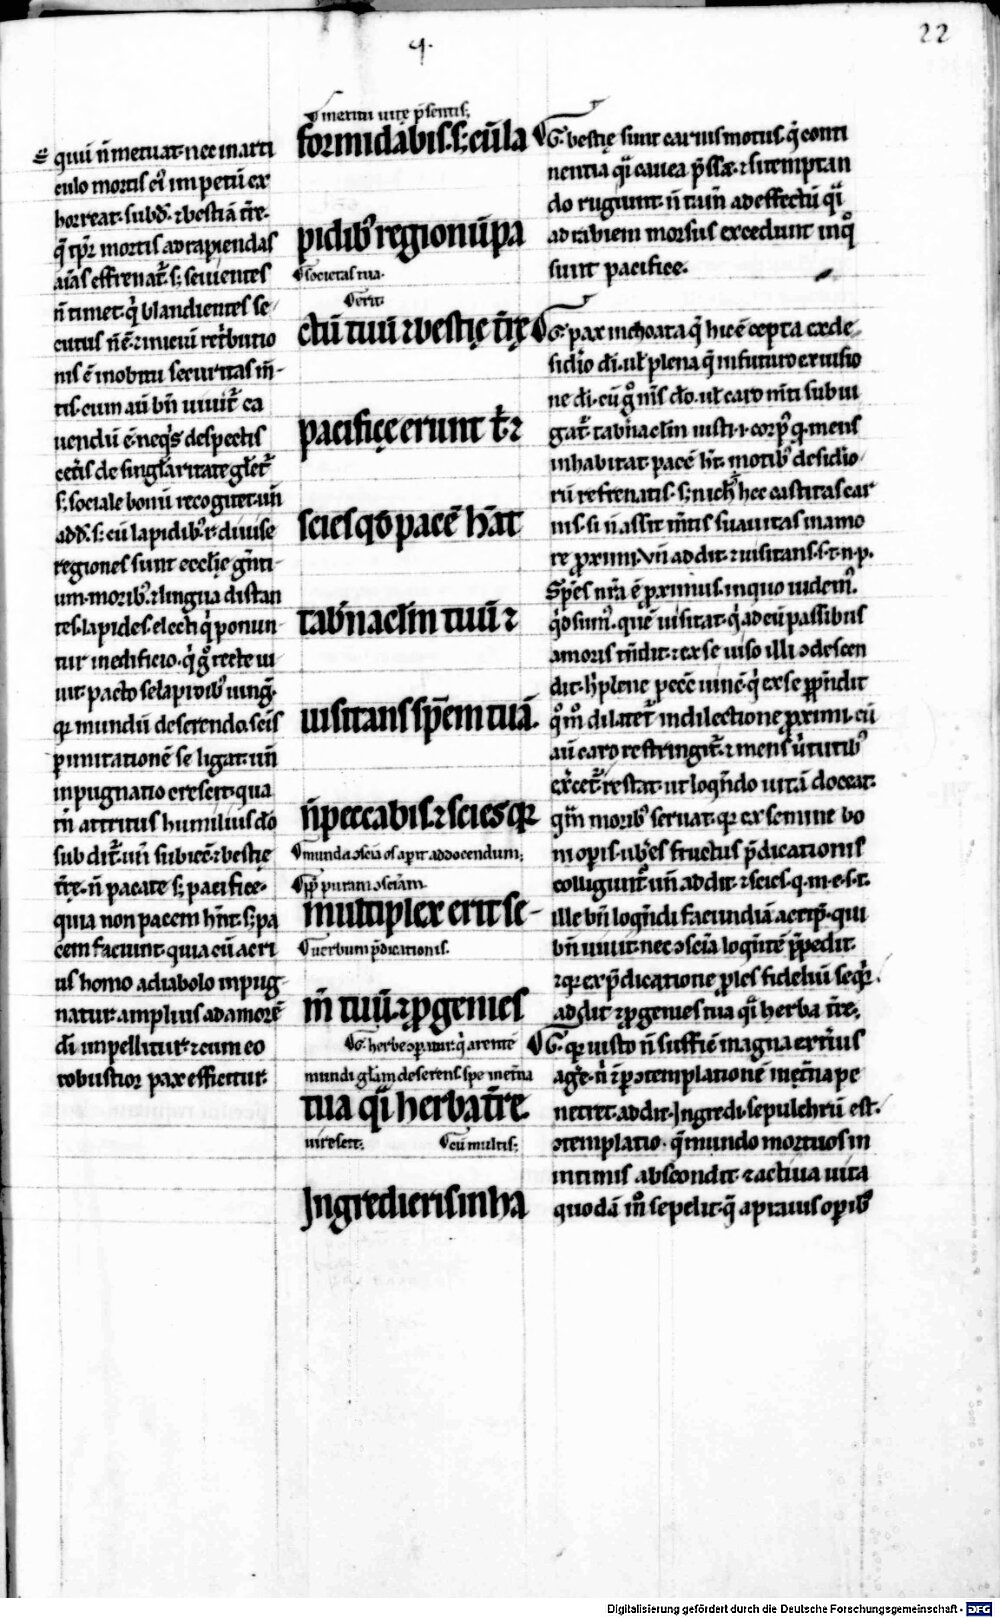 22
q.
qui n̄ metuat. nec in arti
culo mortis ei᷒ impetū ex
horreat. subd̄. ⁊ bestiā t̄re.
q̄ tp̄r mortis ad rapiendas
aīas effrenat᷑. s; seuientes
n̄ timet. q̇ blandientes se
cutus n̄ ē.
nis ē in obitu securitas m̄
tis. cum au bn̄ uiuit᷑ ca
uendū ē. neq᷒s despectis
cet̄is de singlaritate gl̄et᷑
s; sociale bonū recogitet. un̄
add̄. s; cū lapidib᷒ r. diuise
regiones sunt eccl̄ie gn̄ti
um. morib᷒ ⁊ lingua distan
tes. lapides. electi q̇ ponun
tur in edificio. q̇ g᷎ recte ui
uit. pacto se lapidib᷒ iung᷑.
qꝛ mundū deserendo. sc̄is
p imitationē se ligat. un̄
inpugnatio crescit. qua
m̄ attritus humilius dō
subdit᷑. un̄ subicē. ⁊ bestie
t̄re. n̄ pacate s; pacifice.
quia non pacem hn̄t. s; pa
cem faciunt. quia cū acri
us homo a diabolo inpug
natur. amplius ad amorē
dī impellitur. ⁊ cum eo
robustior pax efficitur.
meritū uitę p̄sentis;
formidabis. s; cū la
pidib᷒ regionū pa
societas tua.
erit.
ctū tuū ⁊ bestię t̄rę
pacificę erunt t̄. ⁊
scies qd̄ pacē h̄at
tab̄naclm̄ tuū ⁊
uisitans sp̄em tuā.
n̄ peccabis. ⁊ scies qꝛ
munda ɔscīa os aperit ad docendum;
pp̄ puram ɔsciam.
multiplex erit se
uerbum p̄dicationis.
m̄ tuū. ⁊ ꝓgenies
G. herbe ɔpatur. q̇ arentē
mundi gl̄am deserens. spe in et̄na
tua q̄i herba t̄re.
uirescit. cū multis;
Ingredieris in ha
G. bestię sunt carnis motus. q̇ conti
nentia q̄i cauea p̄ssa. ⁊ si temptan
do rugiunt. n̄ tam̄ ad effectū q̄i
ad rabiem morsus excedunt
sunt pacifice.
G. pax inchoata q̄ hic ē cepta ex de
sidio dī. ul̄ plena q̄ in futuro ex uisio
ne dī. cū g᷎ m̄s dō. ul̄ caro m̄ti subiu
gat᷑. tab̄naclm̄ iusti. i. corp᷒ q. mens
inhabitat. pacē h̄t. motib᷒ desidio
rū refrenatis. s; nichl̄ hec castitas car
nis. si n̄ assit m̄tis suauitas in amo
re ꝓximi. Un̄ addit. ⁊ uisitans. s. t. n. p.
Spēs nr̄a ē ꝓximus. in quo uidem᷒.
quē uisitat. q̇ ad eū passibus
amoris tn̄dit. ⁊ ex se uiso illi ɔdescen
dit.
q᷎m᷎ dilatet᷑ in dilectione ꝓximi. cū
au caro restringit᷑. ⁊ mens uirtutib᷒
ex̄cet᷑. restat. ut loqn̄do uitā doceat.
qm̄ morib᷒ seruat. qꝛ ex semine bo
ni opis. ub̄es fructus p̄dicationis
colligunt᷑. un̄ addit. ⁊ scies. q. m. e. s. t.
ille bn̄ loqn̄di facundiā accip̄. qui
bn̄ uiuit. nec ɔscīa loqn̄tē p̄pedit.
⁊ qꝛ ex p̄dicatione ꝓles fidelium seq̄r᷑.
addit. ⁊ ꝓgenies tua q̄i herba t̄re.
G. qꝛ iusto n̄ sufficē magna exterius
age. n̄ ⁊ p ɔtemplationē in et̄na pe
netret. addit. Ingredi. sepulchrū est.
ɔtemplatio. q̄ mundo mortuos in
intimis abscondit. ⁊ actiua uita
quodā m᷎ sepelit. q̄ a prauis opib᷒
Digitalisierung gefördert durch die Deutsche Forschungsgemeinschaft - DFG